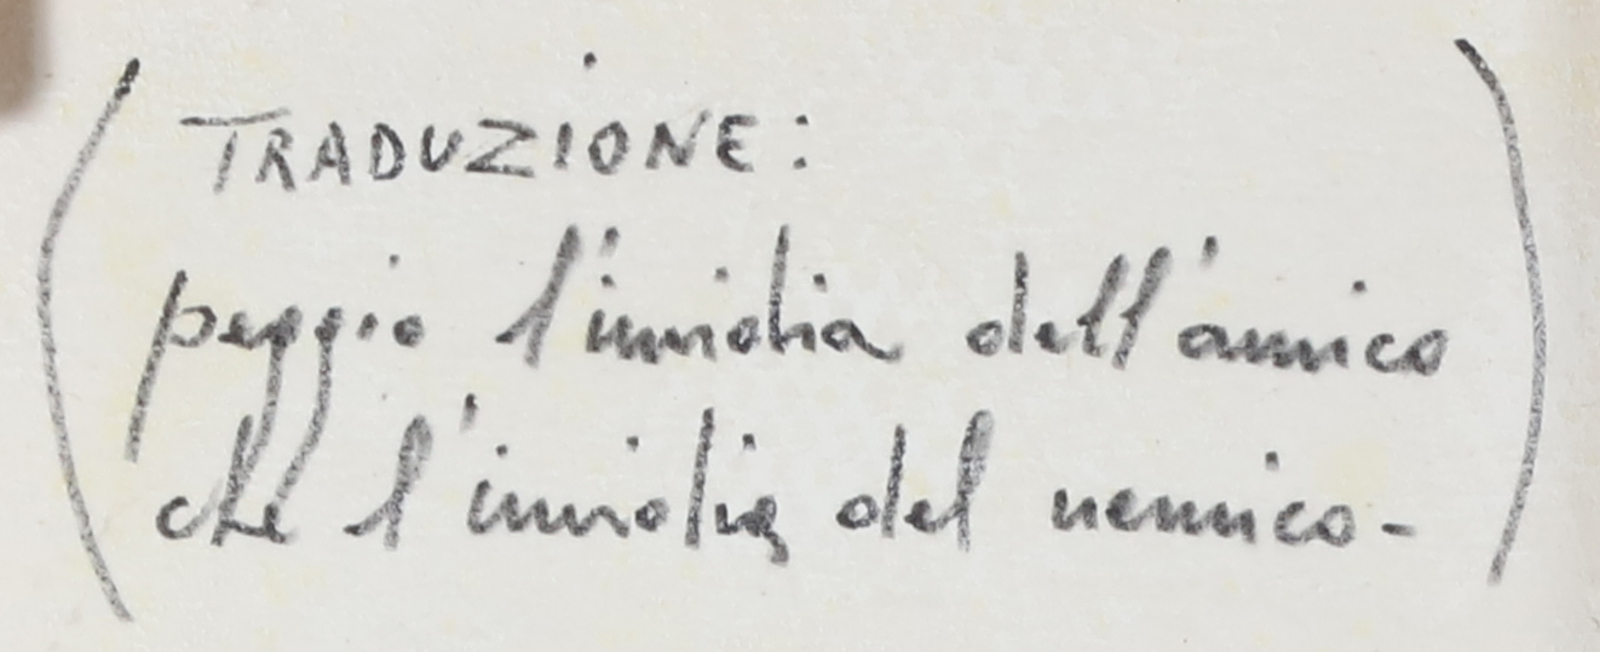 (TRADUZIONE:
peggio l'invidia dell'amico
che l'invidia del nemico-)